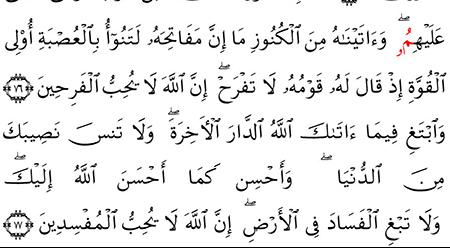 عَلَيْهِمُۥۖ وَءَاتَيْنَٰهُ مِنَ ٱلْكُنُوزِ مَا إِنَّ مَفَاتِحَهُۥ لَتَنُوٓأُ بِٱلْعُصْبَةِ أُوْلِى
ٱلْقُوَّةِ إِذْ قَالَ لَهُۥ قَوْمُهُۥ لَا تَفْرَحْۖ إِنَّ ٱللَّهَ لَا يُحِبُّ ٱلْفَرِحِينَ ۝٧٦
وَٱبْتَغِ فِيمَا ءَاتَىٰكَ ٱللَّهُ ٱلدَّارَ ٱلْأٓخِرَةَۖ وَلَا تَنسَ نَصِيبَكَ
مِنَ ٱلدُّنْيَاۖ وَأَحْسِن كَمَا أَحْسَنَ ٱللَّهُ إِلَيْكَۖ
وَلَا تَبْغِ ٱلْفَسَادَ فِى ٱلْأَرْضِۖ إِنَّ ٱللَّهَ لَا يُحِبُّ ٱلْمُفْسِدِينَ ۝٧٧